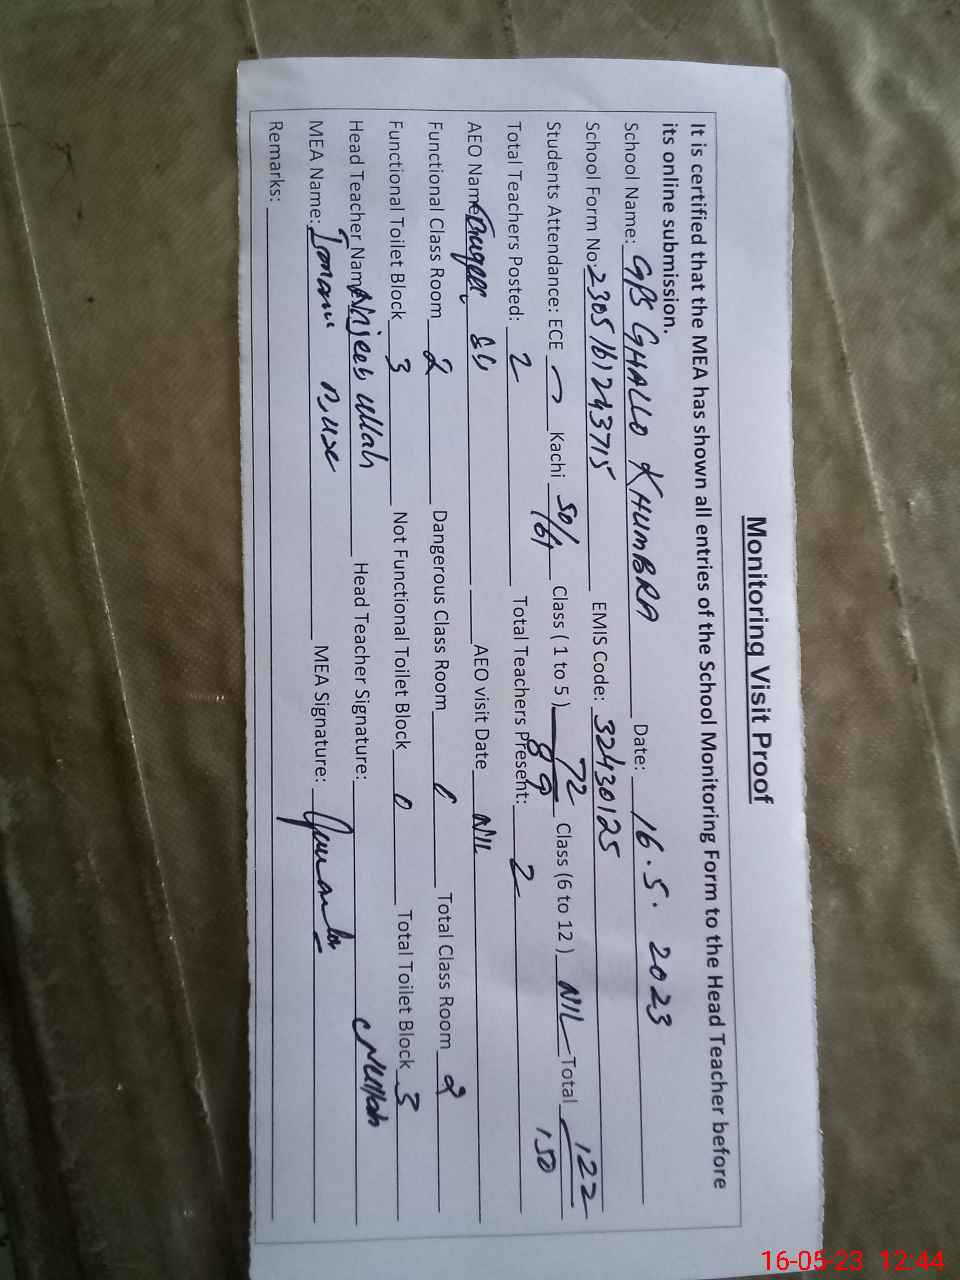 Monitoring Visit Proof
It is certified that the MEA has shown all entries of the School Monitoring Form to the Head Teacher before
its online submission.
School Name: GPS GHALLO KHUMBRA Date: 16.5.2023
School Form No: 2305161243715 EMIS Code: 32430125
Students Attendance: ECE Kachi 50/61 Class (1 to 5) 72/89 Class (6 to 12) NIL Total 122/150
Total Teachers Posted: 2 Total Teachers Present: 2
AEO Name AEO visit Date NIL
Functional Class Room 2 Dangerous Class Room 0 Total Class Room 2
Functional Toilet Block 3 Not Functional Toilet Block 0 Total Toilet Block 3
Head Teacher Name Najeeb ullah Head Teacher Signature:
MEA Name: MEA Signature:
Remarks:
16-05-23 12:44